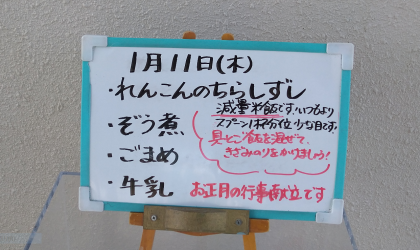 1月11日(木)
・れんこんのちらしずし
減量米飯です。いつもより
スプーン1杯分位少な目です。
・ぞう煮
具とご飯を混ぜて、
きざみのりをかけましょう!
・ごまめ
・牛乳
お正月の行事献立です